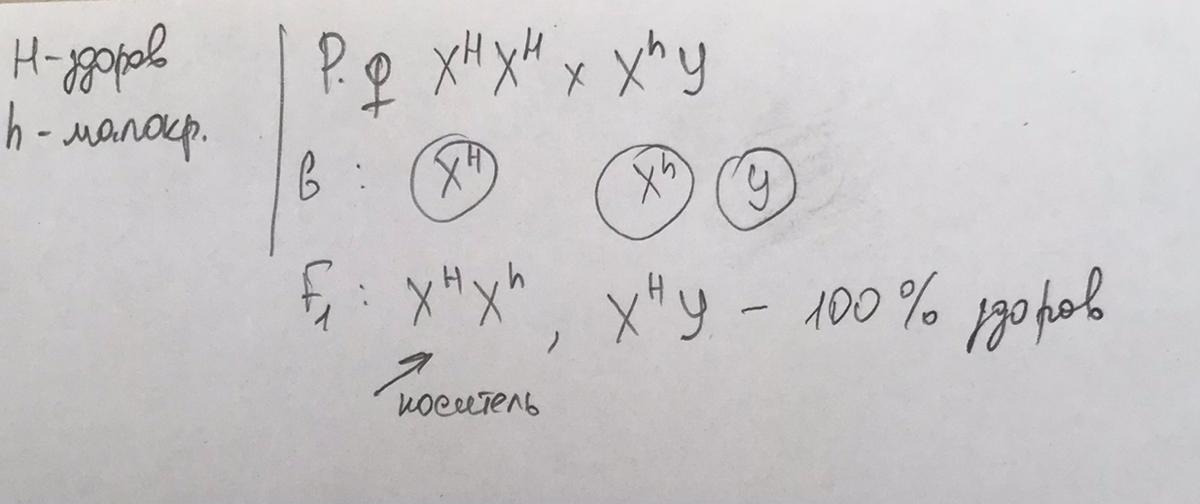 H - здоров
h - малокр.
P. ♀ X^H X^H x X^h У
G : X^H X^h У
F₁ : X^H X^h , X^H У - 100% здоров
носитель